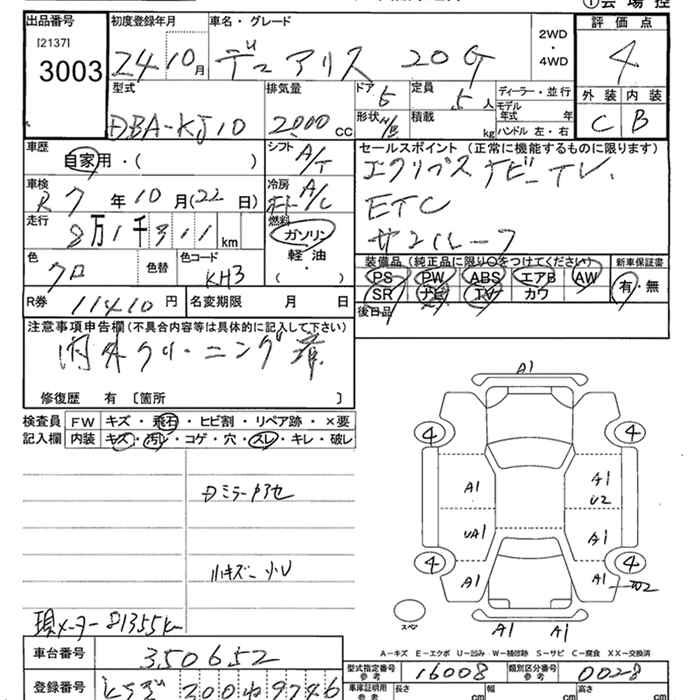 ①会場控
出品番号
[2137]
3003
初度登録年月
24 10月
車名・グレード
デュアリス 20G
2WD
・
4WD
評価点
4
外装 内装
C B
型式
DBA-KJ10
排気量
2000 CC
ドア 5
形状
定員 5 人
積載 kg
ディーラー・並行
モデル年式 年
ハンドル 左・右
車歴
自家用・( )
シフト A/T
セールスポイント (正常に機能するものに限ります)
エクリプスナビ TV.
ETC
サンルーフ
車検
R 7 年 10 月(22 日)
冷房 A/C
走行
8万1千311km
燃料
ガソリン
軽油
( )
色 クロ
色替
色コード KH3
装備品(純正品に限り○をつけてください) 新車保証書
PS PW ABS エアB AW
SR ナビ TV カワ
有・無
R券 11410円
名変期限 月 日
後日品
注意事項申告欄(不具合内容等は具体的に記入して下さい)
内外クリーニング済
修復歴 有 〔箇所 〕
検査員 FW キズ・飛石・ヒビ割・リペア跡・×要
記入欄 内装 キズ・汚レ・コゲ・穴・スレ・キレ・破レ
小キズ 小U
現メーター 81355km
A1
4 4
A1
A1
U2
UA1
A1
4 4
A1
A1
A1 A1
スペア
A-キズ E-エクボ U-凹み W-補修跡 S-サビ C-腐食 XX-交換済
車台番号 350652
型式指定番号 参考 16008
類別区分番号 参考 0028
登録番号
車庫証明用 参考 長さ cm 幅 cm 高さ cm